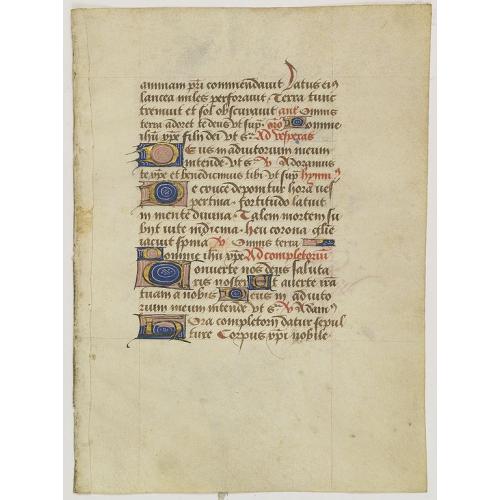 animam pri commendavit Latus eiꝰ
lancea miles perforavit · Terra tunc
tremuit et sol obscuravit añ Omnis
terra adoret te deus vt sup̃ · oro Domine
ihũ xp̃e fili dei vt sͣ · Ad vesperas
Deus in adiutorium meum
intende vt sͣ · ℣ Adoramus
te xp̃e et benedicimus tibi vt sup̃ hymnꝰ
De cruce deponitur hora ves
pertina · fortitudo latuit
in mente divina · Talem mortem su
biit vite medicina · heu corona glie
iacuit supina ℣ · Omnis terra
Domine ihũ xp̃e Ad completoriũ
Converte nos deus saluta
ris noster Et averte irã
tuam a nobis Deus in adiuto
rium meum intende vt sͣ · ℣ Adamꝰ
Hora completorij datur sepul
ture Corpus xp̃i nobile ·